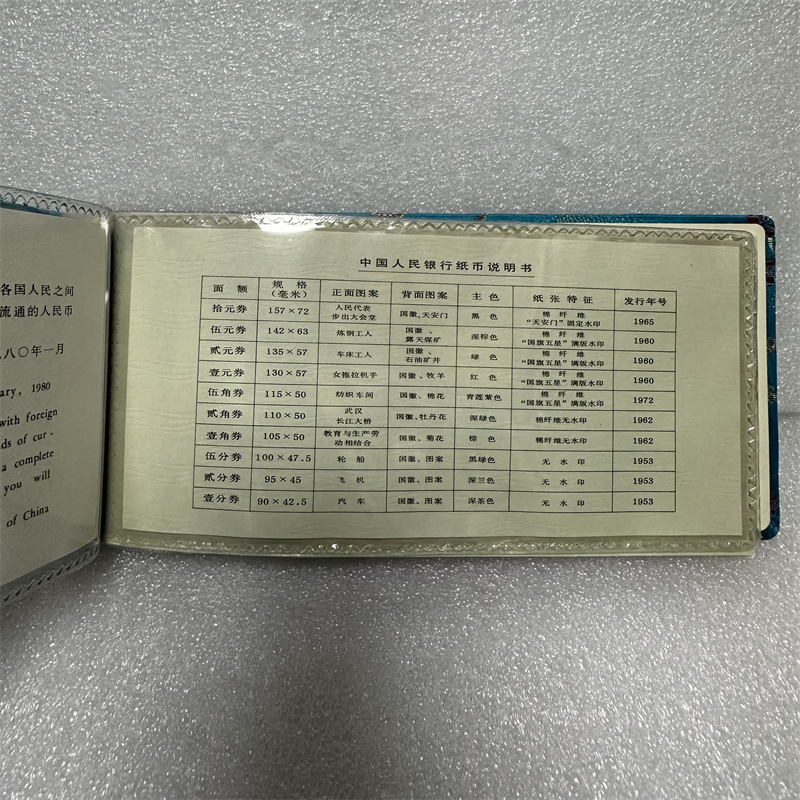 各国人民之间
流通的人民币
八〇年一月
ary, 1980
with foreign
ds of cur-
a complete
you will
of China
中国人民银行纸币说明书
面额 规格(毫米) 正面图案 背面图案 主色 纸张特征 发行年号
拾元券 157×72 人民代表步出大会堂 国徽、天安门 黑色 棉纤维“天安门”固定水印 1965
伍元券 142×63 炼钢工人 国徽、露天煤矿 深棕色 棉纤维“国旗五星”满版水印 1960
贰元券 135×57 车床工人 国徽、石油矿井 绿色 棉纤维“国旗五星”满版水印 1960
壹元券 130×57 女拖拉机手 国徽、牧羊 红色 棉纤维“国旗五星”满版水印 1960
伍角券 115×50 纺织车间 国徽、棉花 青莲紫色 棉纤维“国旗五星”满版水印 1972
贰角券 110×50 武汉长江大桥 国徽、牡丹花 深绿色 棉纤维无水印 1962
壹角券 105×50 教育与生产劳动相结合 国徽、菊花 棕色 棉纤维无水印 1962
伍分券 100×47.5 轮船 国徽、图案 黑绿色 无水印 1953
贰分券 95×45 飞机 国徽、图案 深兰色 无水印 1953
壹分券 90×42.5 汽车 国徽、图案 深茶色 无水印 1953